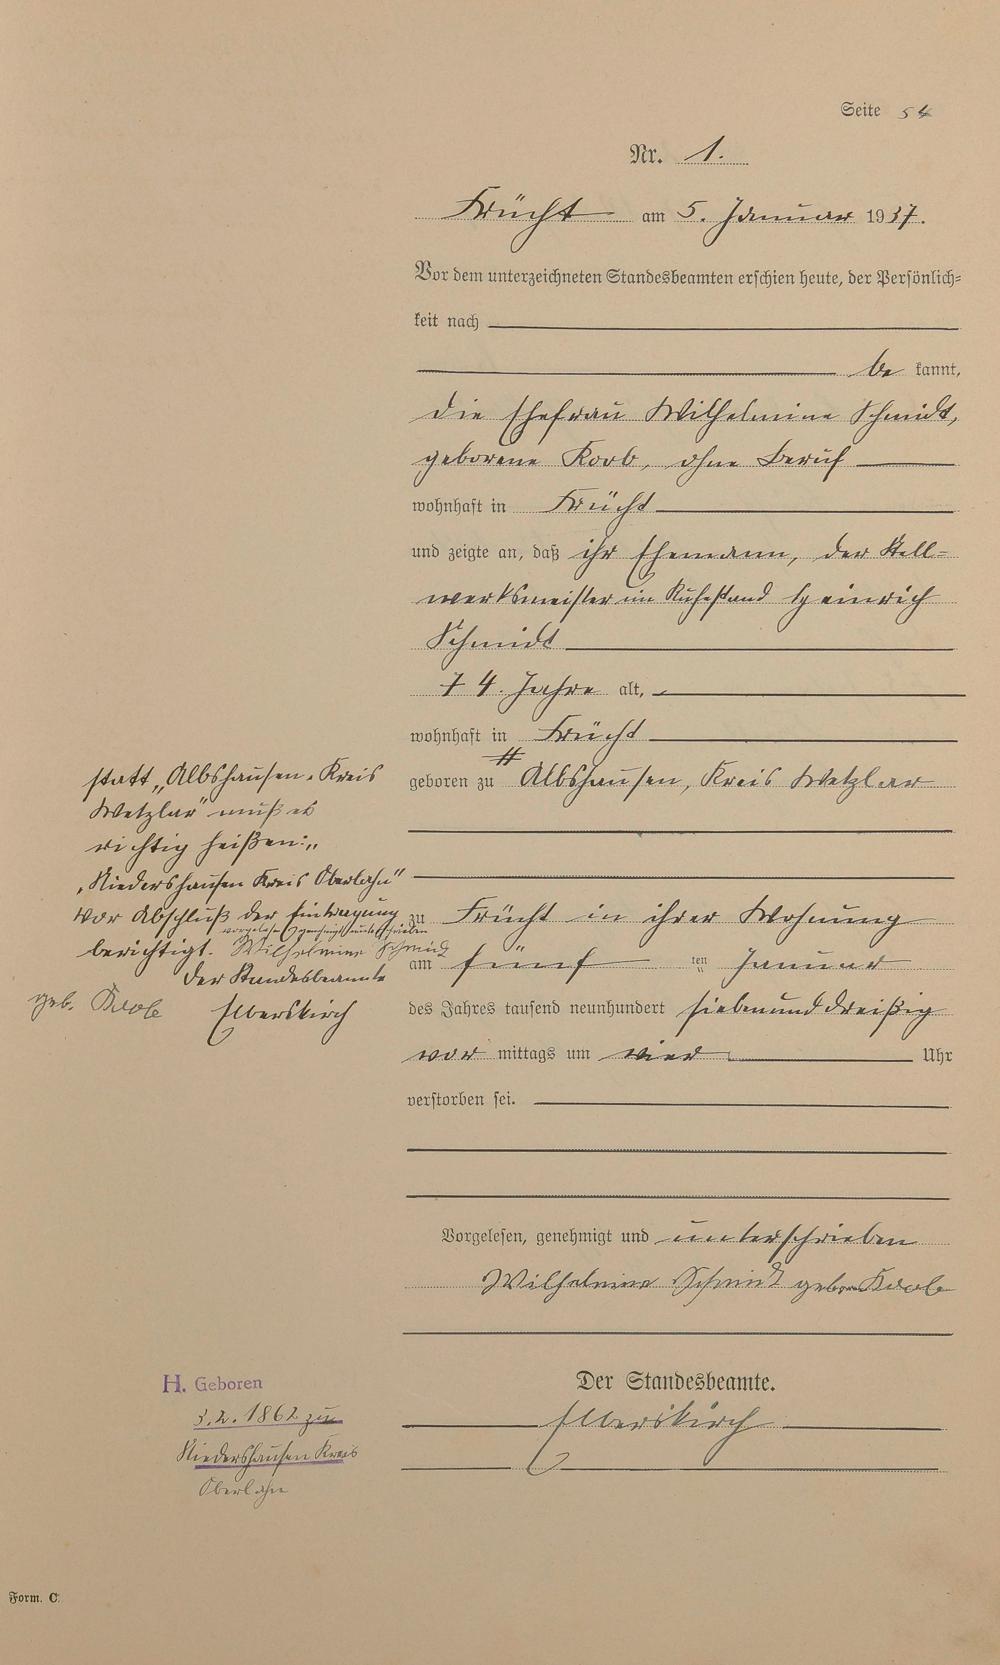 Seite 54
Nr. 1.
Frücht am 5. Januar 1937.
Vor dem unterzeichneten Standesbeamten erschien heute, der Persönlich=
keit nach
be kannt,
die Ehefrau Wilhelmine Schmidt,
geborene Korb, ohne Beruf
wohnhaft in Frücht
und zeigte an, daß ihr Ehemann, der Stell=
werksmeister im Ruhestand Heinrich
Schmidt
74 Jahre alt,
wohnhaft in Frücht
geboren zu # Albshausen, Kreis Wetzlar
zu Frücht in ihrer Wohnung
am fünf ten Januar
des Jahres tausend neunhundert siebenunddreißig
vor mittags um vier Uhr
verstorben sei.
Vorgelesen, genehmigt und unterschrieben
Wilhelmine Schmidt geborene Korb
Der Standesbeamte.
Elberskirch
statt „Albshausen, Kreis
Wetzlar" muß es
richtig heißen: „
„Niedershausen Kreis Oberlahn"
Vor Abschluß der Eintragung
vorgelesen, genehmigt, unterschrieben
berichtigt. Wilhelmine Schmidt
Der Standesbeamte
geb. Korb Elberskirch
H. Geboren
3.2.1862 zu
Niedershausen Kreis
Oberlahn
Form. C.